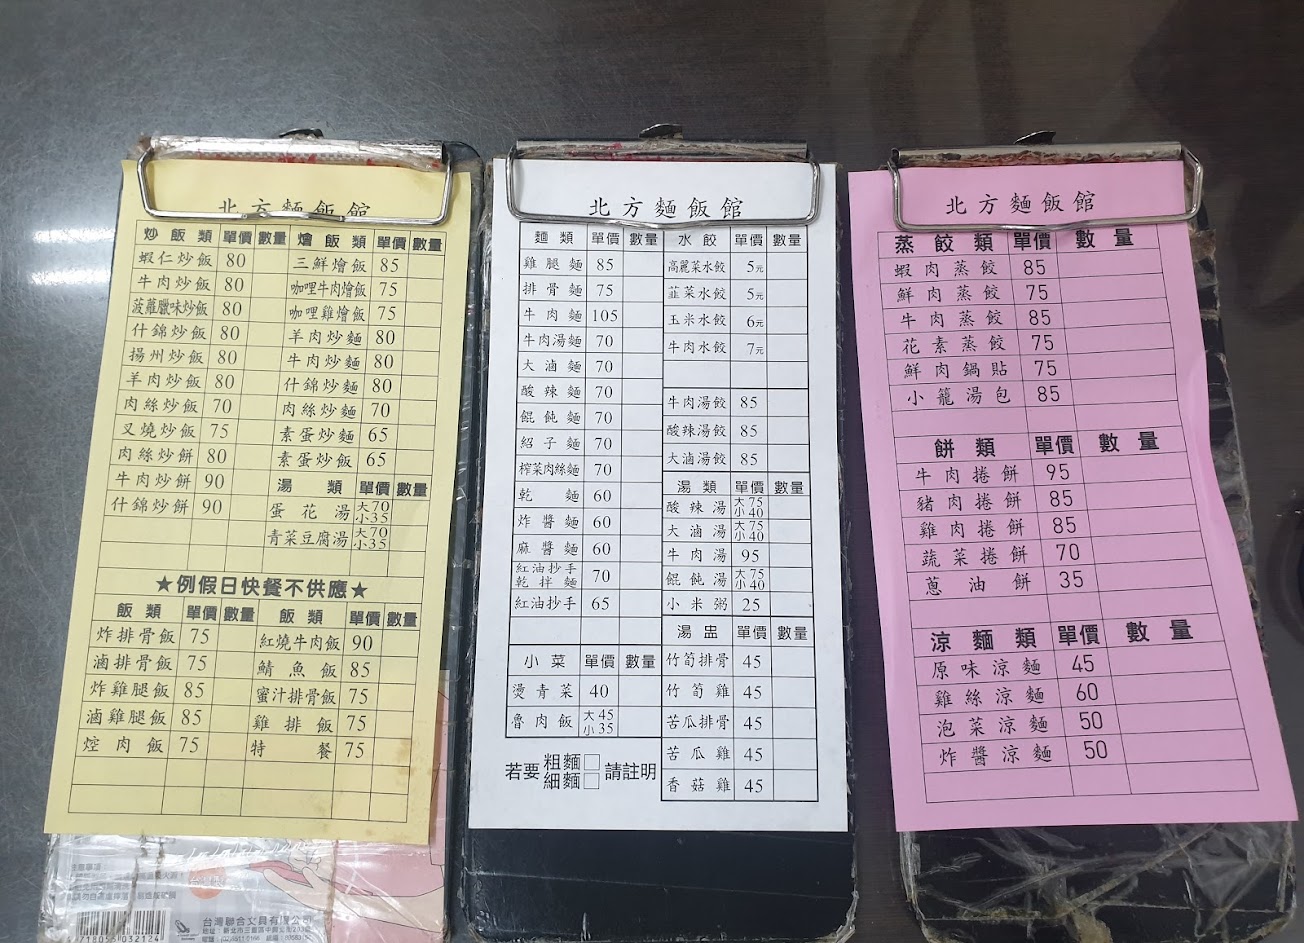 北方麵飯館
炒飯類 單價 數量 燴飯類 單價 數量
蝦仁炒飯 80 三鮮燴飯 85
牛肉炒飯 80 咖哩牛肉燴飯 75
菠蘿臘味炒飯 80 咖哩雞燴飯 75
什錦炒飯 80 羊肉炒麵 80
揚州炒飯 80 牛肉炒麵 80
羊肉炒飯 80 什錦炒麵 80
肉絲炒飯 70 肉絲炒麵 70
叉燒炒飯 75 素蛋炒麵 65
肉絲炒餅 80 素蛋炒飯 65
牛肉炒餅 90 湯類 單價 數量
什錦炒餅 90 蛋花湯 大70 小35
青菜豆腐湯 大70 小35
★例假日快餐不供應★
飯類 單價 數量 飯類 單價 數量
炸排骨飯 75 紅燒牛肉飯 90
滷排骨飯 75 鯖魚飯 85
炸雞腿飯 85 蜜汁排骨飯 75
滷雞腿飯 85 雞排飯 75
焢肉飯 75 特餐 75
台灣聯合文具有限公司
4718055032124
北方麵飯館
麵類 單價 數量 水餃 單價 數量
雞腿麵 85 高麗菜水餃 5元
排骨麵 75 韮菜水餃 5元
牛肉麵 105 玉米水餃 6元
牛肉湯麵 70 牛肉水餃 7元
大滷麵 70
酸辣麵 70 牛肉湯餃 85
餛飩麵 70 酸辣湯餃 85
紹子麵 70 大滷湯餃 85
榨菜肉絲麵 70 湯類 單價 數量
乾麵 60 酸辣湯 大75 小40
炸醬麵 60 大滷湯 大75 小40
麻醬麵 60 牛肉湯 95
紅油抄手乾拌麵 70 餛飩湯 大75 小40
紅油抄手 65 小米粥 25
湯盅 單價 數量
小菜 單價 數量 竹筍排骨 45
燙青菜 40 竹筍雞 45
魯肉飯 大45 小35 苦瓜排骨 45
若要 粗麵□ 細麵□ 請註明 苦瓜雞 45
香菇雞 45
北方麵飯館
蒸餃類 單價 數量
蝦肉蒸餃 85
鮮肉蒸餃 75
牛肉蒸餃 85
花素蒸餃 75
鮮肉鍋貼 75
小籠湯包 85
餅類 單價 數量
牛肉捲餅 95
豬肉捲餅 85
雞肉捲餅 85
蔬菜捲餅 70
蔥油餅 35
涼麵類 單價 數量
原味涼麵 45
雞絲涼麵 60
泡菜涼麵 50
炸醬涼麵 50